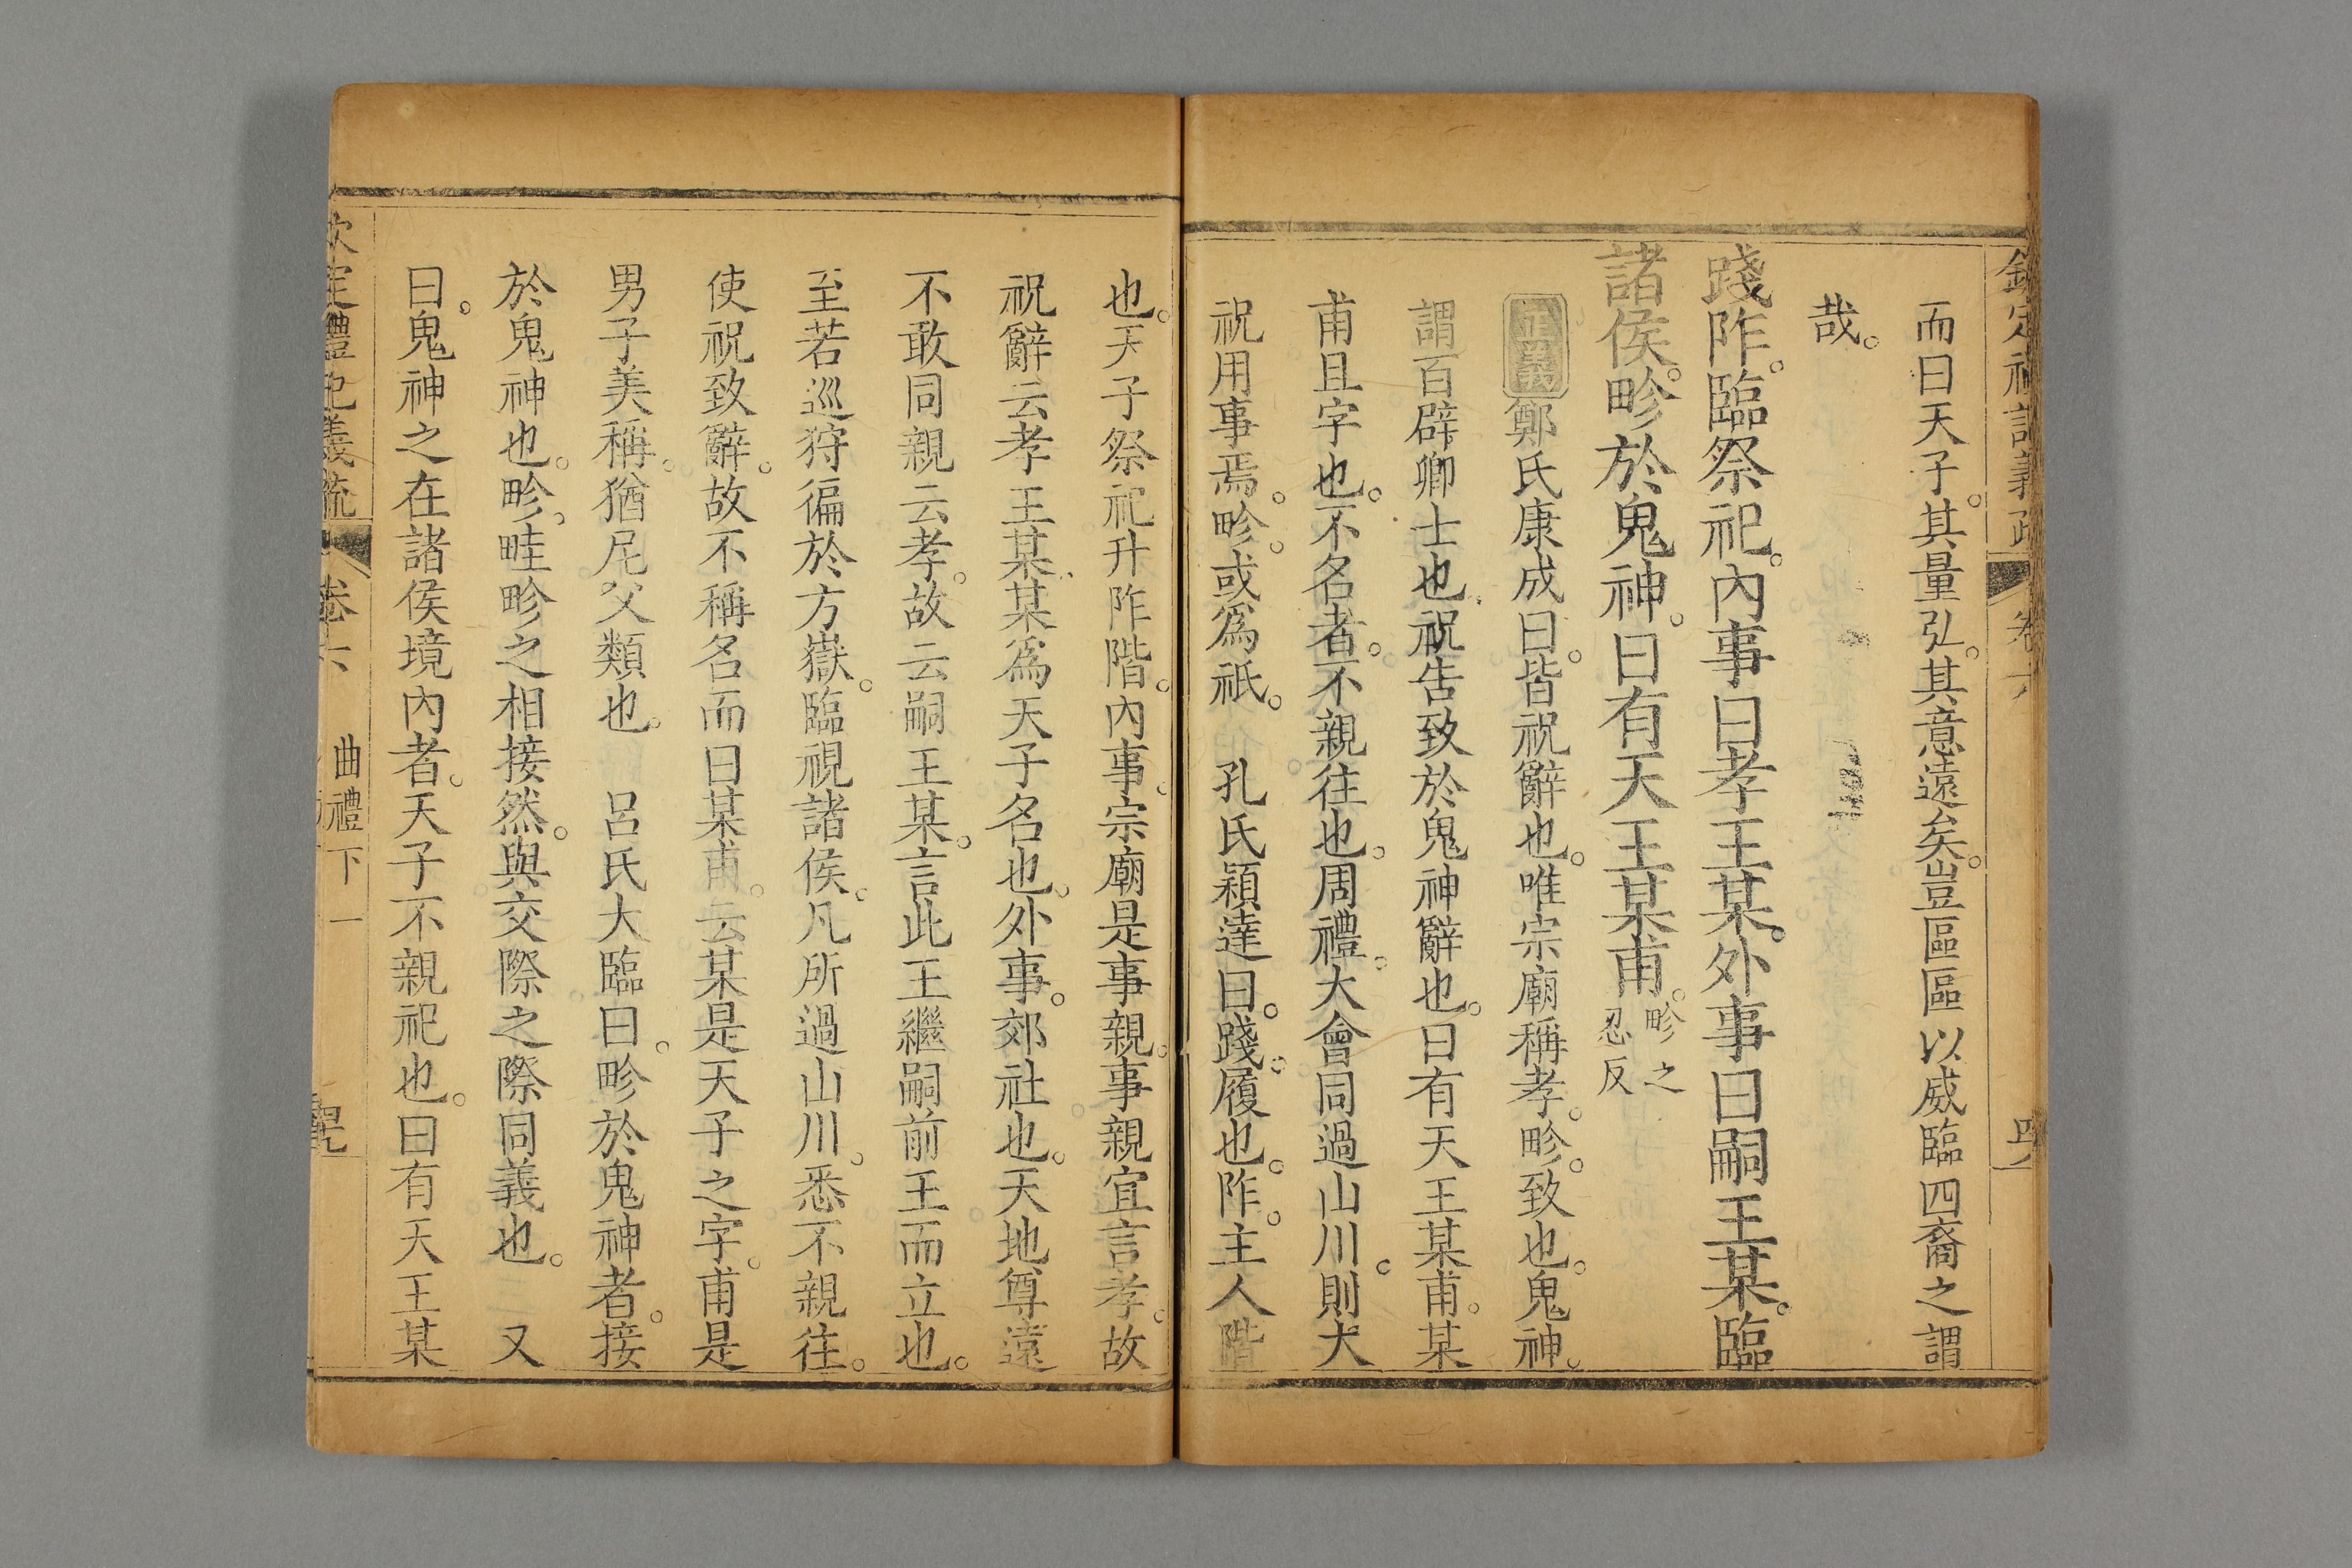 欽定禮記義疏 卷六
而曰天子其量弘其意遠矣豈區區以威臨四裔之謂
哉
踐阼臨祭祀內事曰孝王某外事曰嗣王某臨
諸侯畛於鬼神曰有天王某甫畛之忍反
正義鄭氏康成曰皆祝辭也唯宗廟稱孝畛致也鬼神
謂百辟卿士也祝告致於鬼神辭也曰有天王某甫某
甫且字也不名者不親往也周禮大會同過山川則大
祝用事焉畛或為祇 孔氏穎達曰踐履也阼主人階
也天子祭祀升阼階內事宗廟是事親事親宜言孝故
祝辭云孝王某某為天子名也外事郊社也天地尊遠
不敢同親云孝故云嗣王某言此王繼嗣前王而立也
至若巡狩徧於方嶽臨視諸侯凡所過山川悉不親往
使祝致辭故不稱名而曰某甫云某是天子之字甫是
男子美稱猶尼父類也 呂氏大臨曰畛於鬼神者接
於鬼神也畛畦畛之相接然與交際之際同義也 又
曰鬼神之在諸侯境內者天子不親祀也曰有天王某
欽定禮記義疏 卷六 曲禮下一